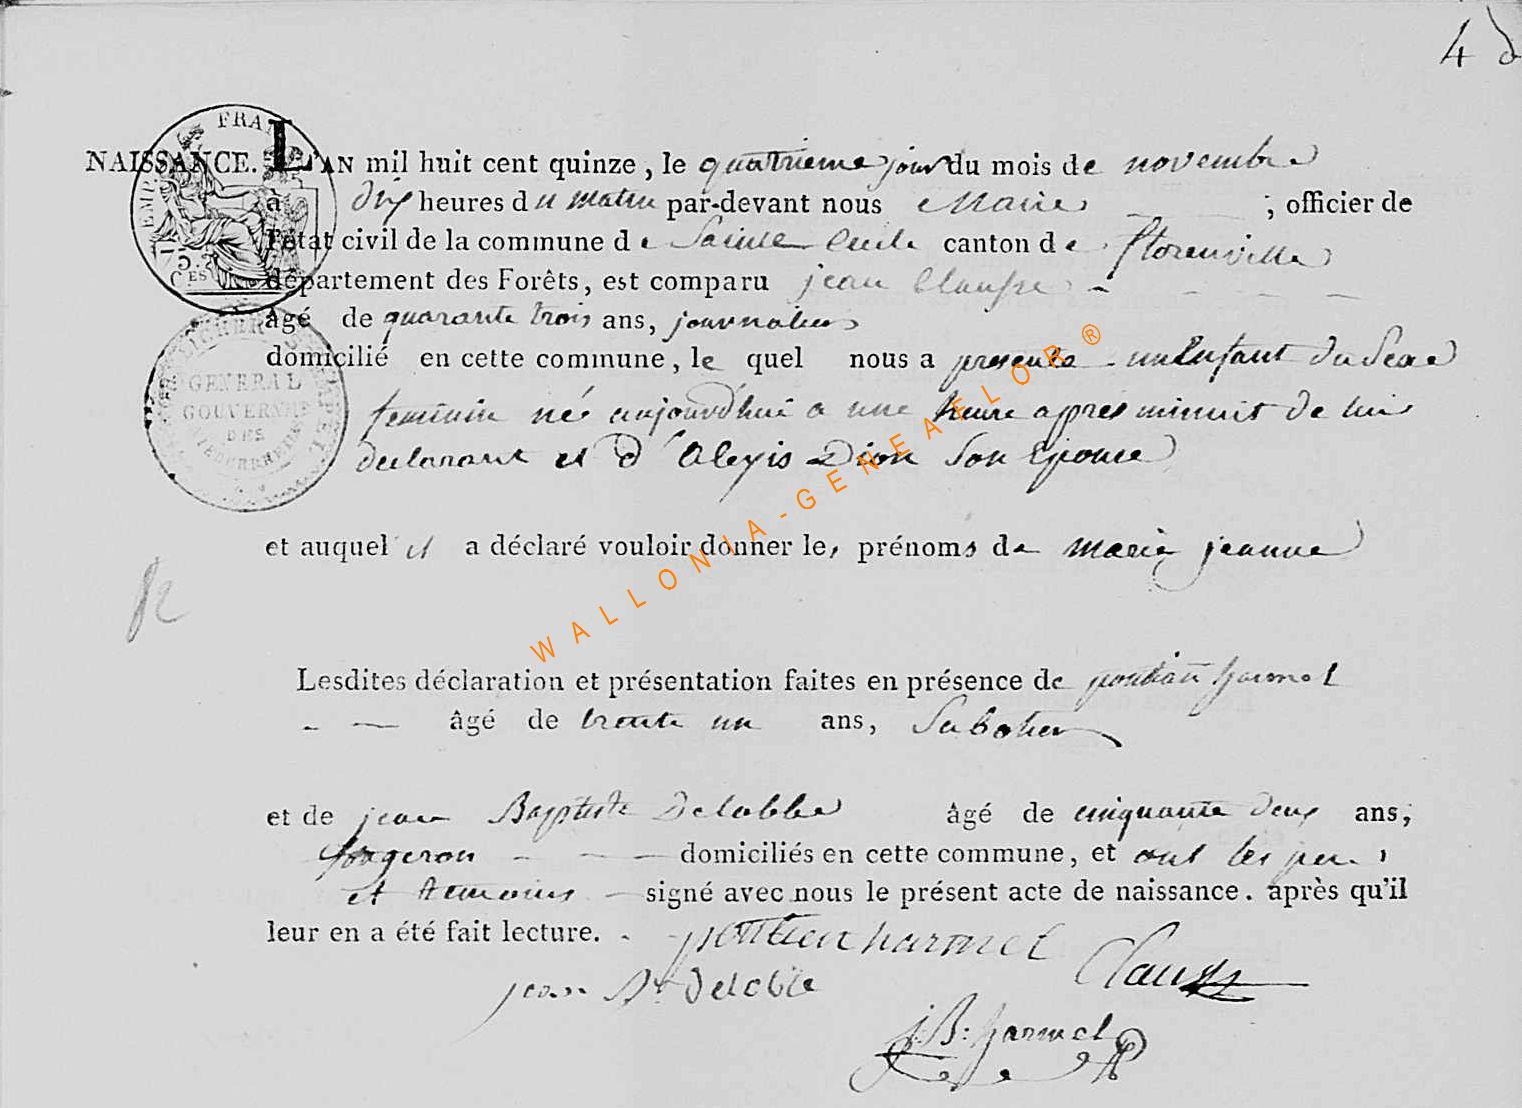 4 d
NAISSANCE. L'AN mil huit cent quinze, le quatrieme jour du mois de novembre
à dix heures du matin par-devant nous Maire ; officier de
l'état civil de la commune de Sainte Cecile canton de florenville
département des Forêts, est comparu jean Clausse
âgé de quarante trois ans, journalier
domicilié en cette commune, le quel nous a presenté un Enfant du Sexe
feminin né aujourd'hui a une heure apres minuit de lui
declarant et d'Alexis Dion Son Epouse
et auquel il a déclaré vouloir donner les prénoms de marie jeanne
Lesdites déclaration et présentation faites en présence de pontian harmel
âgé de trente un ans, Sabotier
et de jean Baptiste Delobbe âgé de cinquante deux ans,
forgeron domiciliés en cette commune, et ont les pere
et temoins signé avec nous le présent acte de naissance. après qu'il
leur en a été fait lecture.
pontien harmel
Clauss
jean Bte Delobbe
J:B: harmel
FRAN
EMP.
25
CES
GENERAL
GOUVERNE
DES
NIEDERRHEINS
WALLONIA-GENEALOR ®